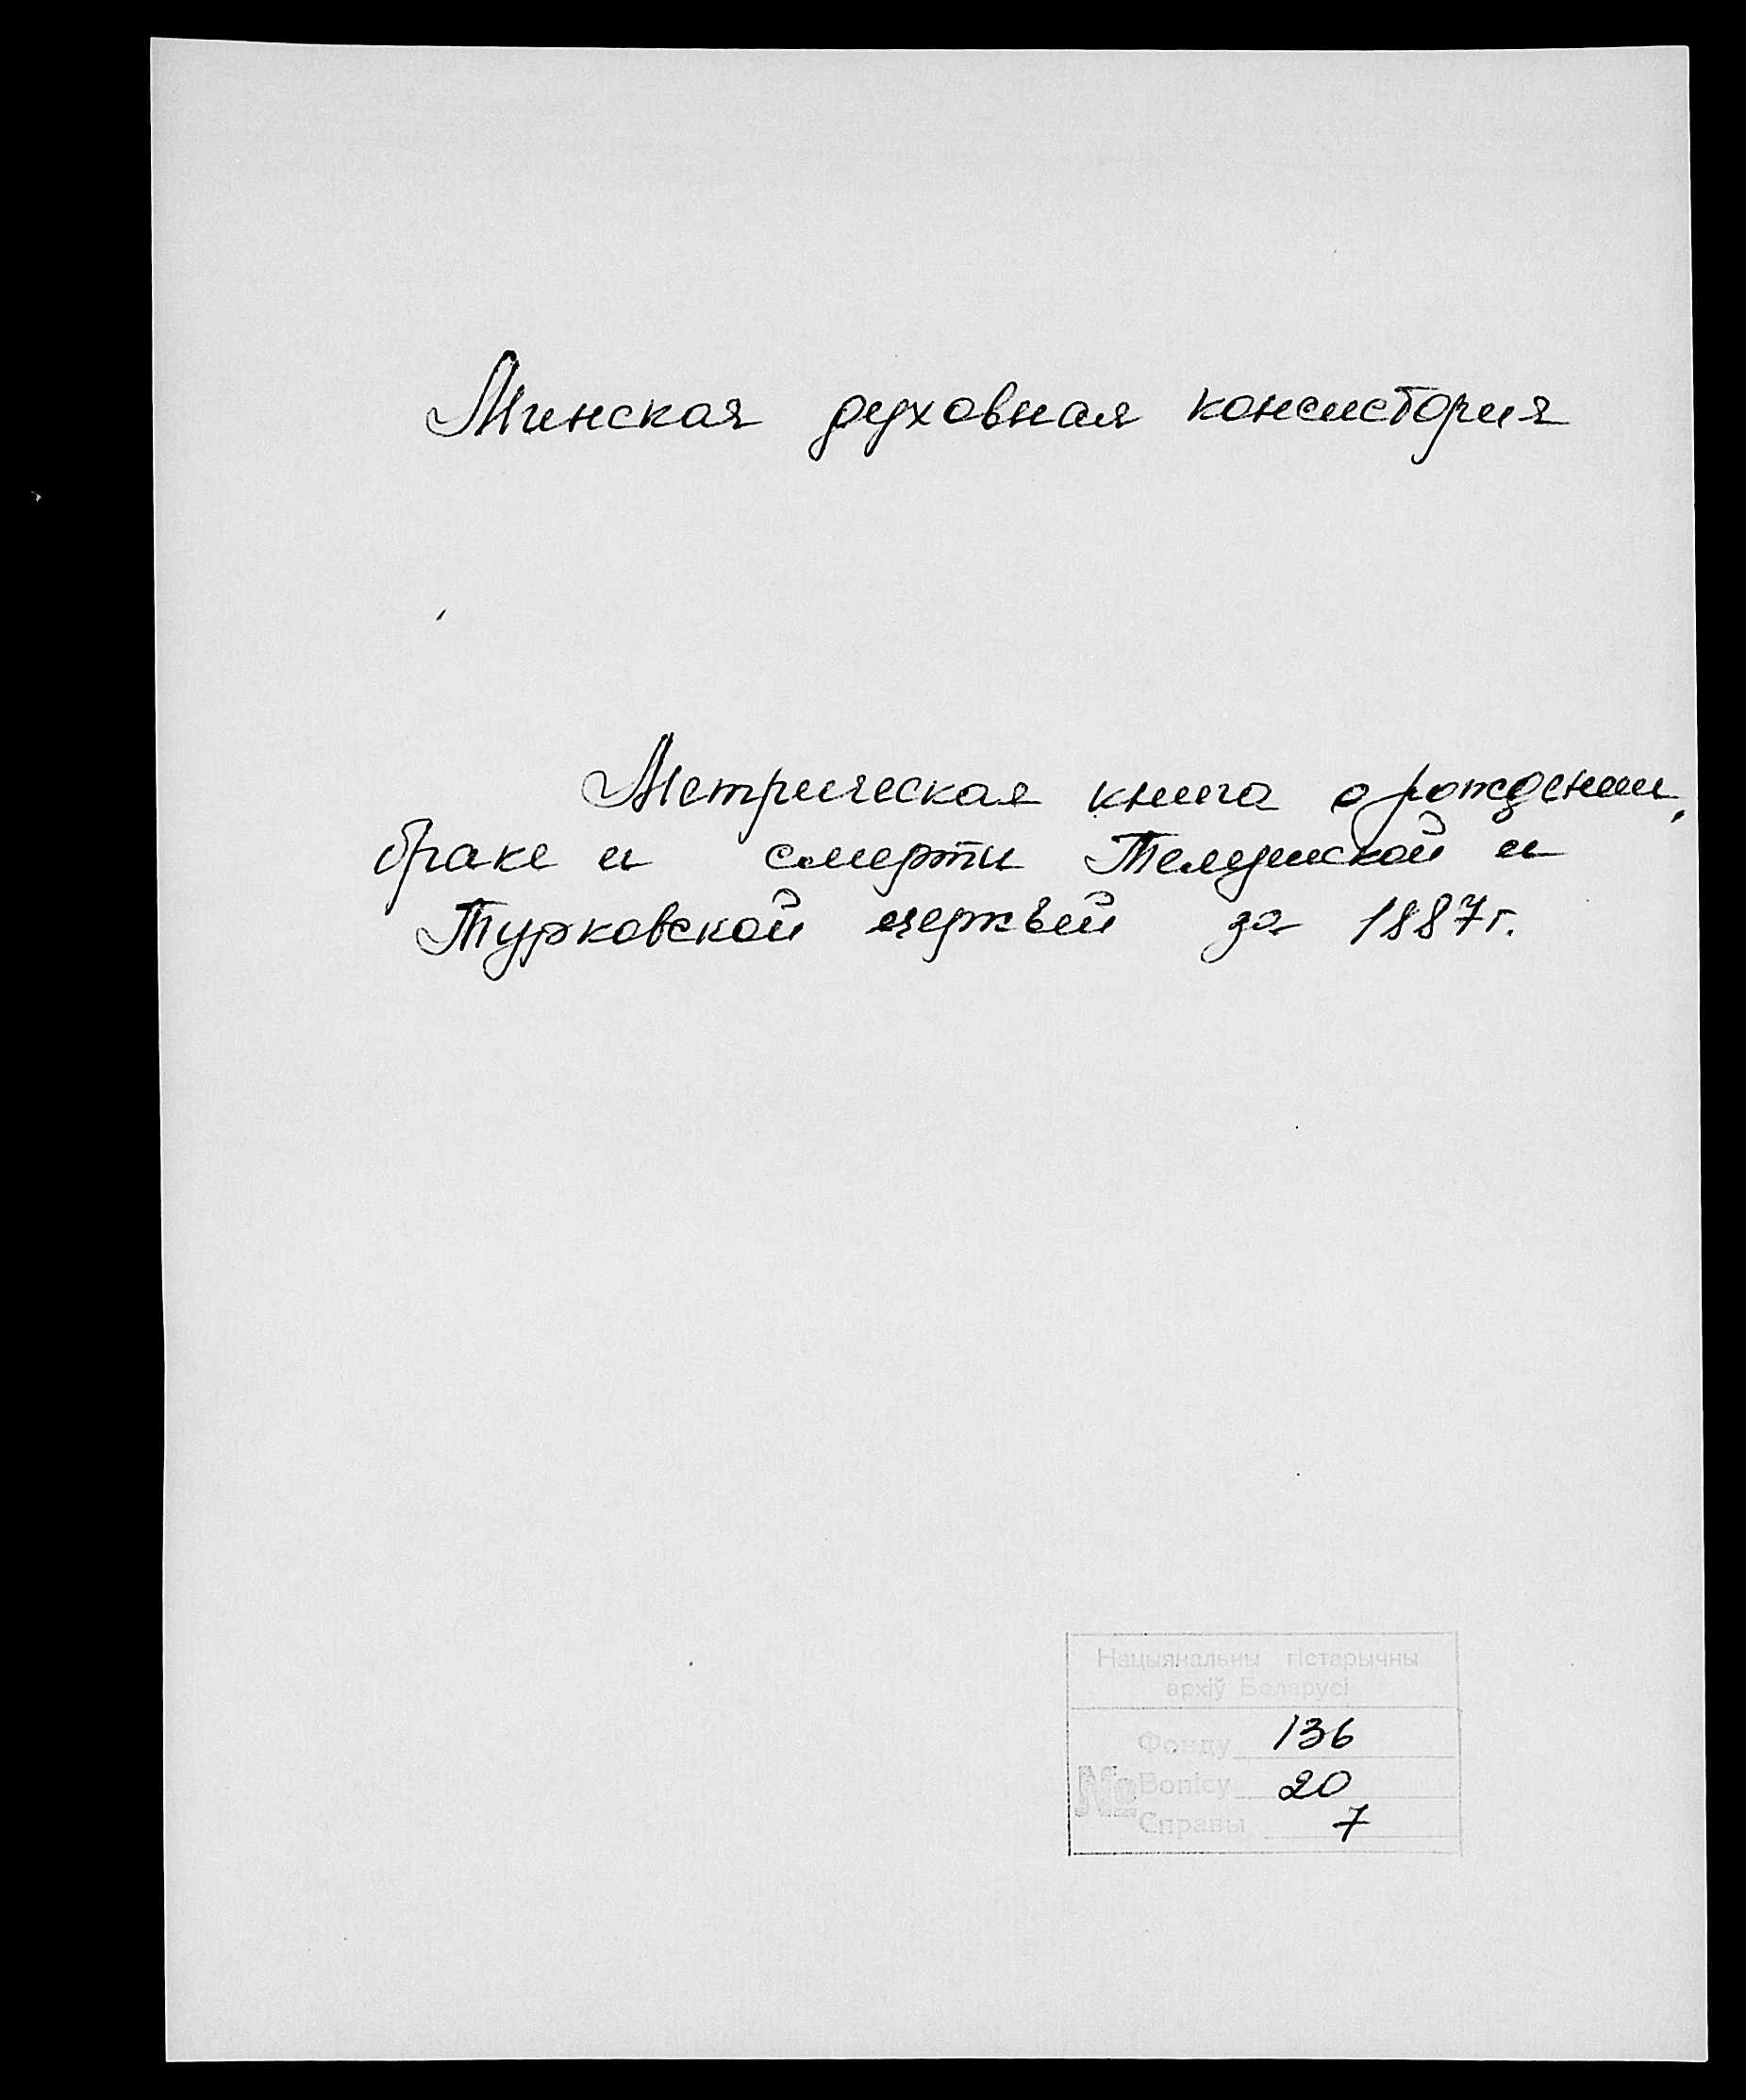 Минская духовная консистория
Метрическая книга о рождении,
браке и смерти Телушской и
Турковской церквей за 1887 г.
Нацыянальны гістарычны
архіў Беларусі
Фонду 136
№ Вопісу 20
Справы 7